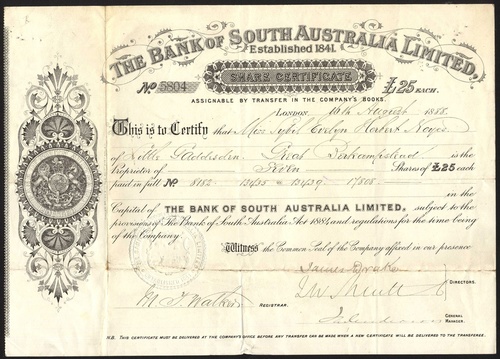 THE BANK OF SOUTH AUSTRALIA LIMITED.
Established 1841.
SHARE CERTIFICATE
No 5804
£25 EACH.
ASSIGNABLE BY TRANSFER IN THE COMPANY'S BOOKS.
LONDON, 16th August 1888.
This is to Certify that Miss Sybil Evelyn Herbert Noyes
of Little Gaddesden Great Berkhampstead is the
Proprietor of Shares of £25 each
paid in full No 8182 13435 13439 17808
in the
Capital of THE BANK OF SOUTH AUSTRALIA LIMITED, subject to the
provisions of The Bank of South Australia Act 1884, and regulations for the time being
of the Company.
Witness the Common Seal of the Company affixed in our presence
James Drake
DIRECTORS.
REGISTRAR.
GENERAL MANAGER.
N.B. THIS CERTIFICATE MUST BE DELIVERED AT THE COMPANY'S OFFICE BEFORE ANY TRANSFER CAN BE MADE WHEN A NEW CERTIFICATE WILL BE DELIVERED TO THE TRANSFEREE.